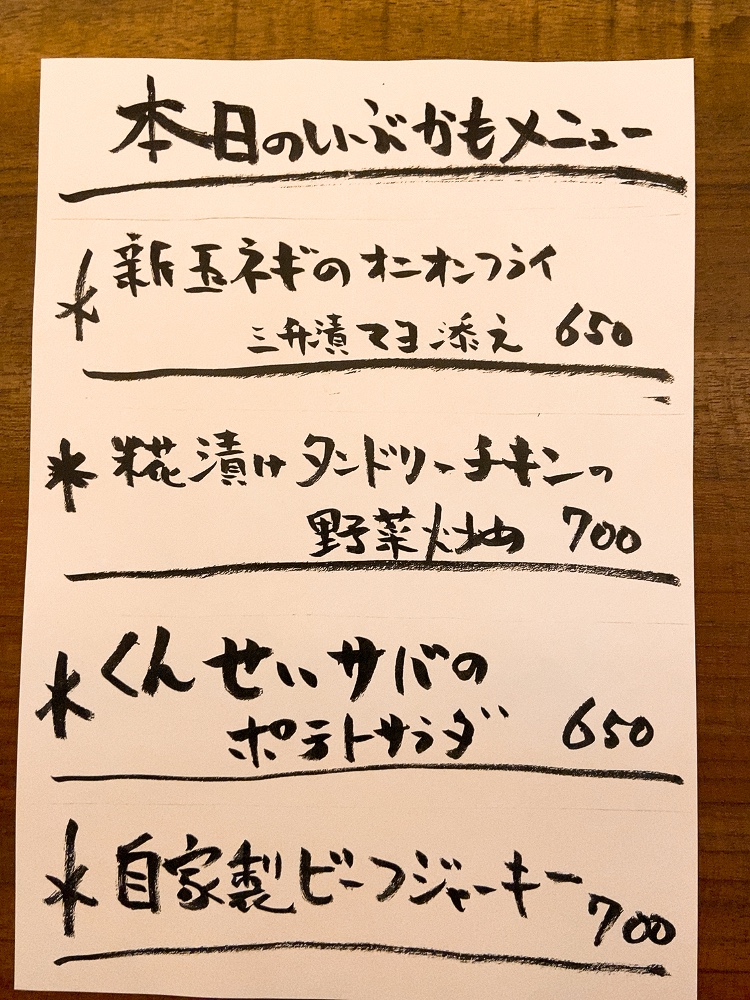 本日のいぶかもメニュー
* 新玉ネギのオニオンフライ
三升漬マヨ添え 650
* 糀漬けタンドリーチキンの
野菜炒め 700
* くんせいサバの
ポテトサラダ 650
* 自家製ビーフジャーキー
700